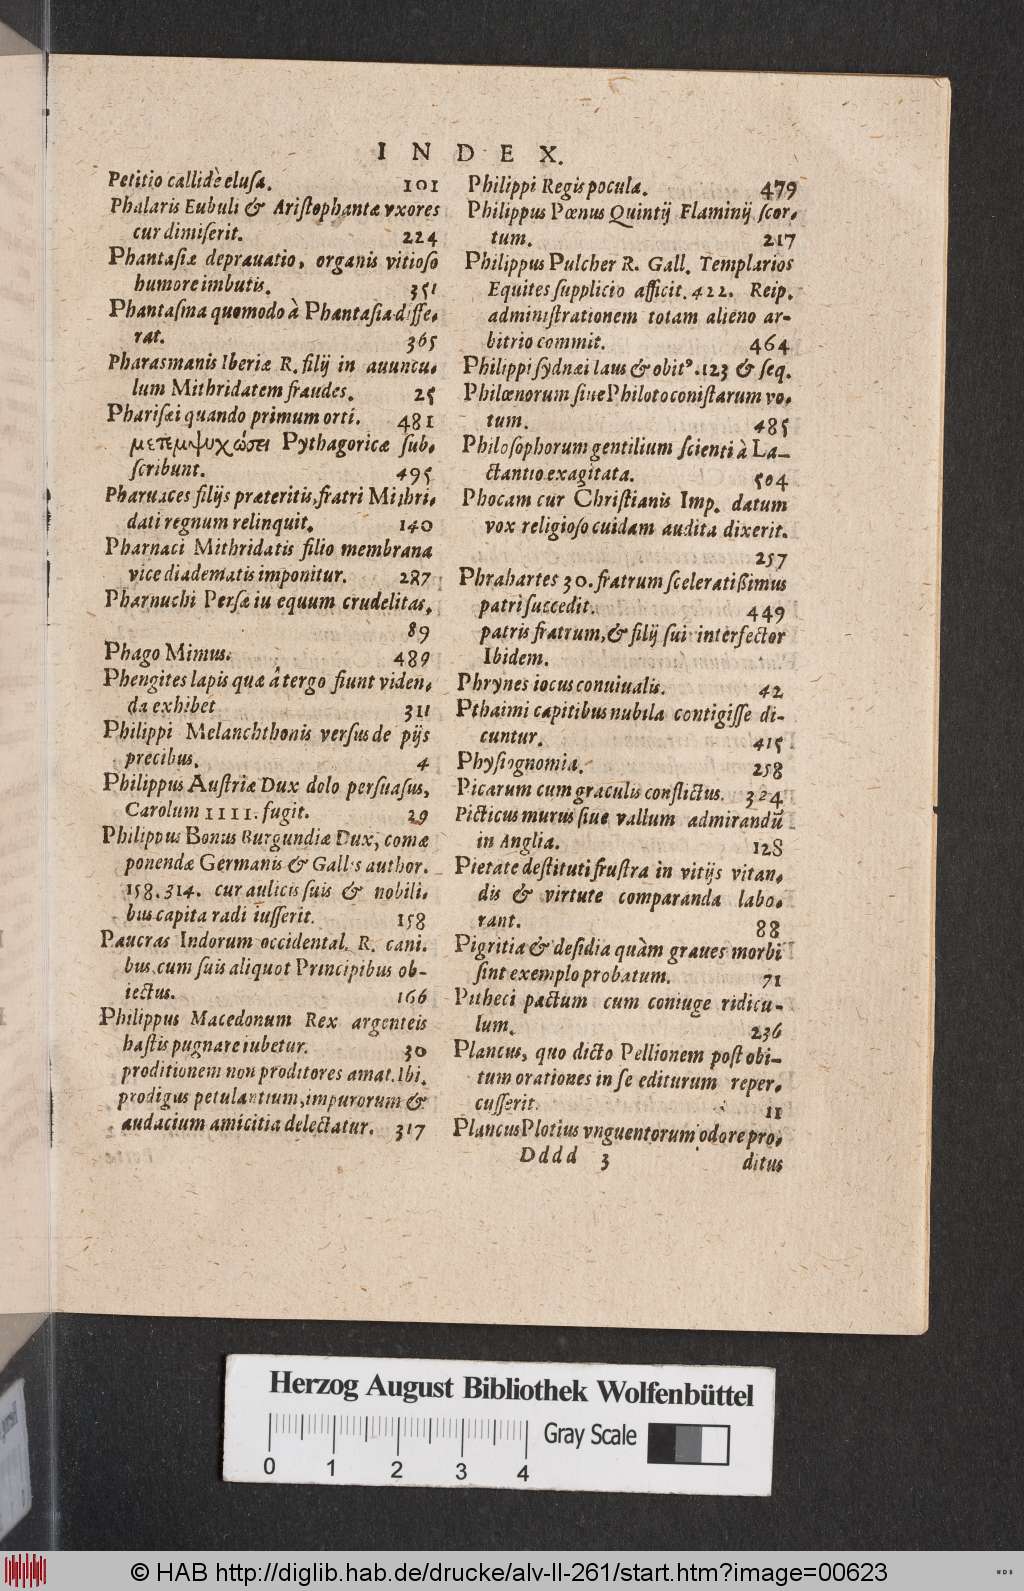 INDEX.
Petitio callidè elusa. 101
Phalaris Eubuli & Aristophantæ vxores
cur dimiserit. 224
Phantasiæ deprauatio, organis vitioso
humore imbutis. 351
Phantasma quomodo à Phantasia diffe-
rat. 365
Pharasmanis Iberiæ R. filij in auuncu-
lum Mithridatem fraudes. 25
Pharisæi quando primum orti. 481
μετεμψυχώσει Pythagoricæ sub-
scribunt. 495
Pharnaces filijs præteritis, fratri Mithri-
dati regnum relinquit. 140
Pharnaci Mithridatis filio membrana
vice diadematis imponitur. 287
Pharnuchi Persæ in equum crudelitas.
89
Phago Mimus. 489
Phengites lapis quæ â tergo fiunt viden-
da exhibet 311
Philippi Melanchthonis versus de pijs
precibus. 4
Philippus Austriæ Dux dolo persuasus,
Carolum IIII. fugit. 29
Philippus Bonus Burgundiæ Dux, comæ
ponendæ Germanis & Gallis author.
158. 314. cur aulicis suis & nobili-
bus capita radi iusserit. 158
Paucras Indorum occidental. R. cani-
bus cum suis aliquot Principibus ob-
iectus. 166
Philippus Macedonum Rex argenteis
hastis pugnare iubetur. 30
proditionem non proditores amat. Ibi.
prodigus petulantium, impurorum &
audacium amicitia delectatur. 317
Philippi Regis pocula. 479
Philippus Pœnus Quintij Flaminij scor-
tum. 217
Philippus Pulcher R. Gall. Templarios
Equites supplicio afficit. 422. Reip.
administrationem totam alieno ar-
bitrio commit. 464
Philippi sydnæi laus & obitꝰ. 123 & seq.
Philœnorum siue Philotoconistarum vo-
tum. 485
Philosophorum gentilium scienti à La-
ctantio exagitata. 504
Phocam cur Christianis Imp. datum
vox religioso cuidam audita dixerit.
257
Phrahartes 30. fratrum sceleratißimus
patri succedit. 449
patris fratrum, & filij sui interfector
Ibidem.
Phrynes iocus conuiualis. 42
Pthaimi capitibus nubila contigisse di-
cuntur. 415
Physiognomia. 258
Picarum cum graculis conflictus. 324
Picticus murus siue vallum admirandū
in Anglia. 128
Pietate destituti frustra in vitijs vitan-
dis & virtute comparanda labo-
rant. 88
Pigritia & desidia quàm graues morbi
sint exemplo probatum. 71
Pitheci pactum cum coniuge ridicu-
lum. 236
Plancus, quo dicto Pellionem post obi-
tum orationes in se editurum reper-
cusserit. 11
Plancus Plotius vnguentorum odore pro-
Dddd 3 ditus
Herzog August Bibliothek Wolfenbüttel
0 1 2 3 4 Gray Scale
© HAB http://diglib.hab.de/drucke/alv-ll-261/start.htm?image=00623